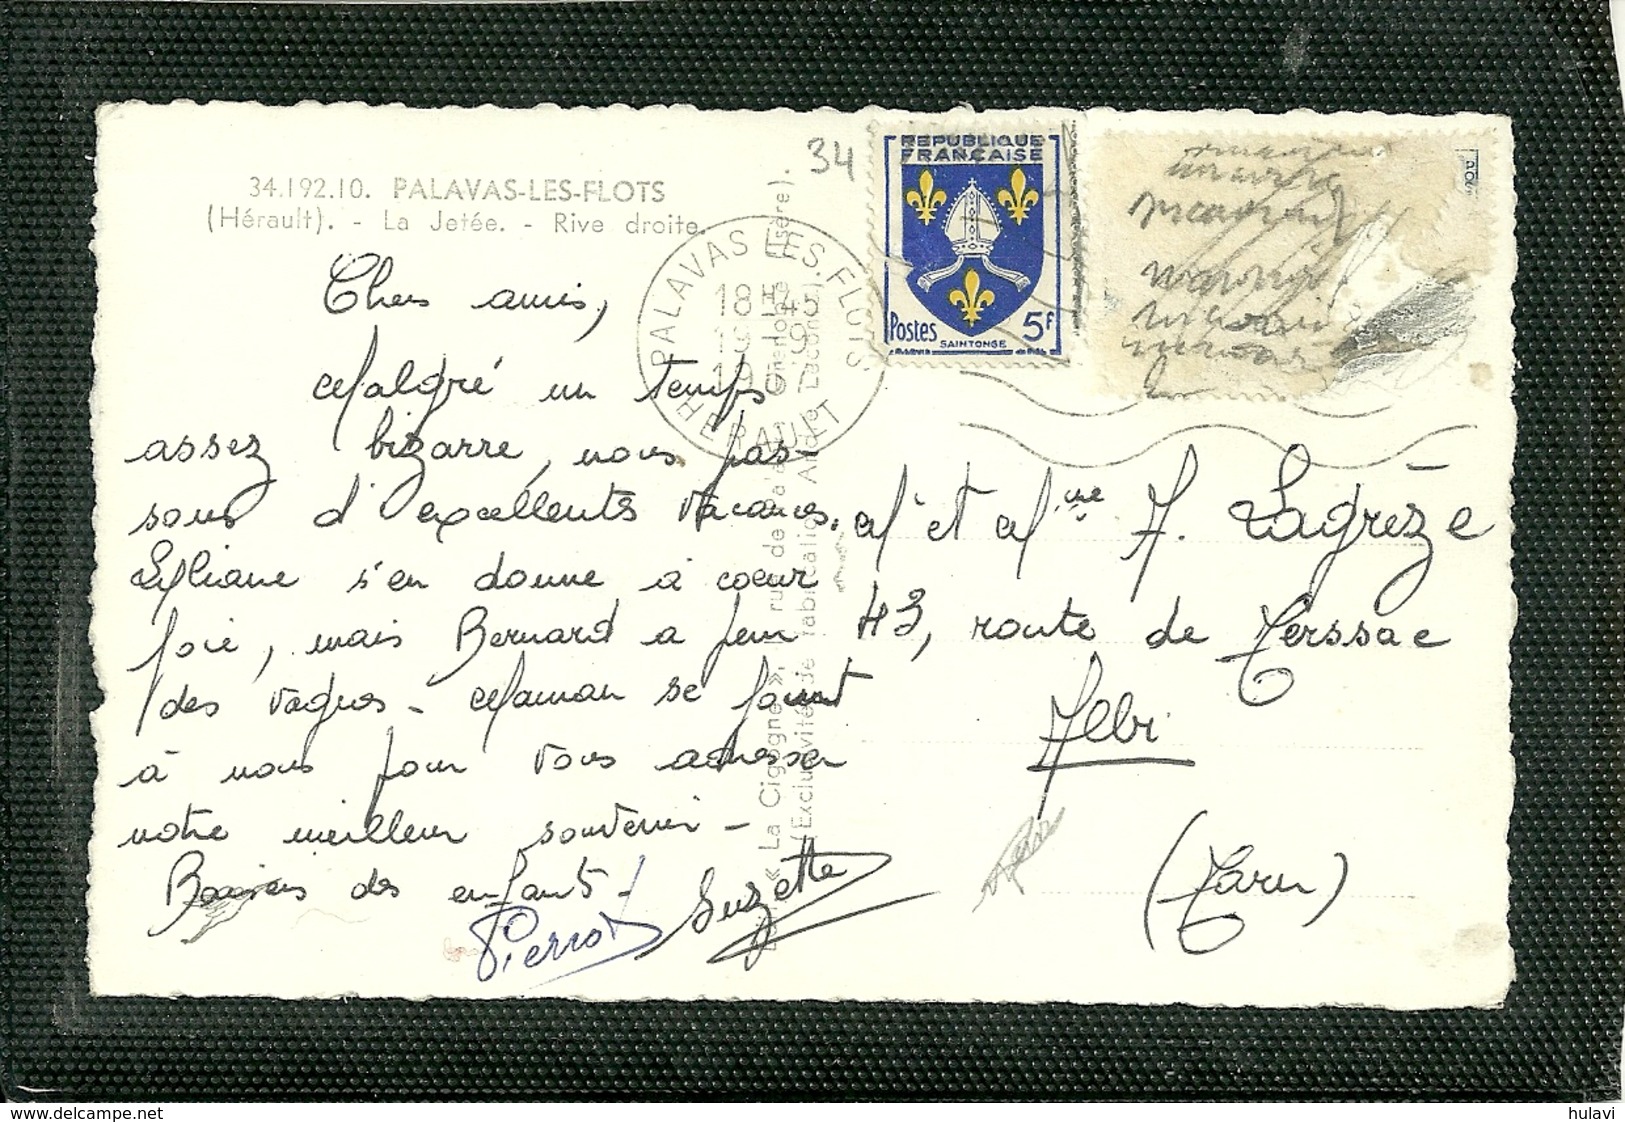 34.192.10. PALAVAS-LES-FLOTS
(Hérault). - La Jetée. - Rive droite.
34
REPUBLIQUE
FRANÇAISE
Postes 5F
SAINTONGE
PALAVAS LES FLOTS
18H45
HERAULT
Chers amis,
Malgré un temps
assez bizarre, nous pas-
sons d'excellentes vacances.
Lyliane s'en donne à coeur
joie, mais Bernard a peur
des vagues - Maman se joint
à nous pour vous adresser
notre meilleur souvenir -
Baisers des enfants -
Pierrot Suzette
Mr et Mme A. Lagrèze
43, route de Terssac
Albi
(Tarn)
« La Cigogne », rue de
(Exclusivité de fabrication
delcampe.net
hulavi